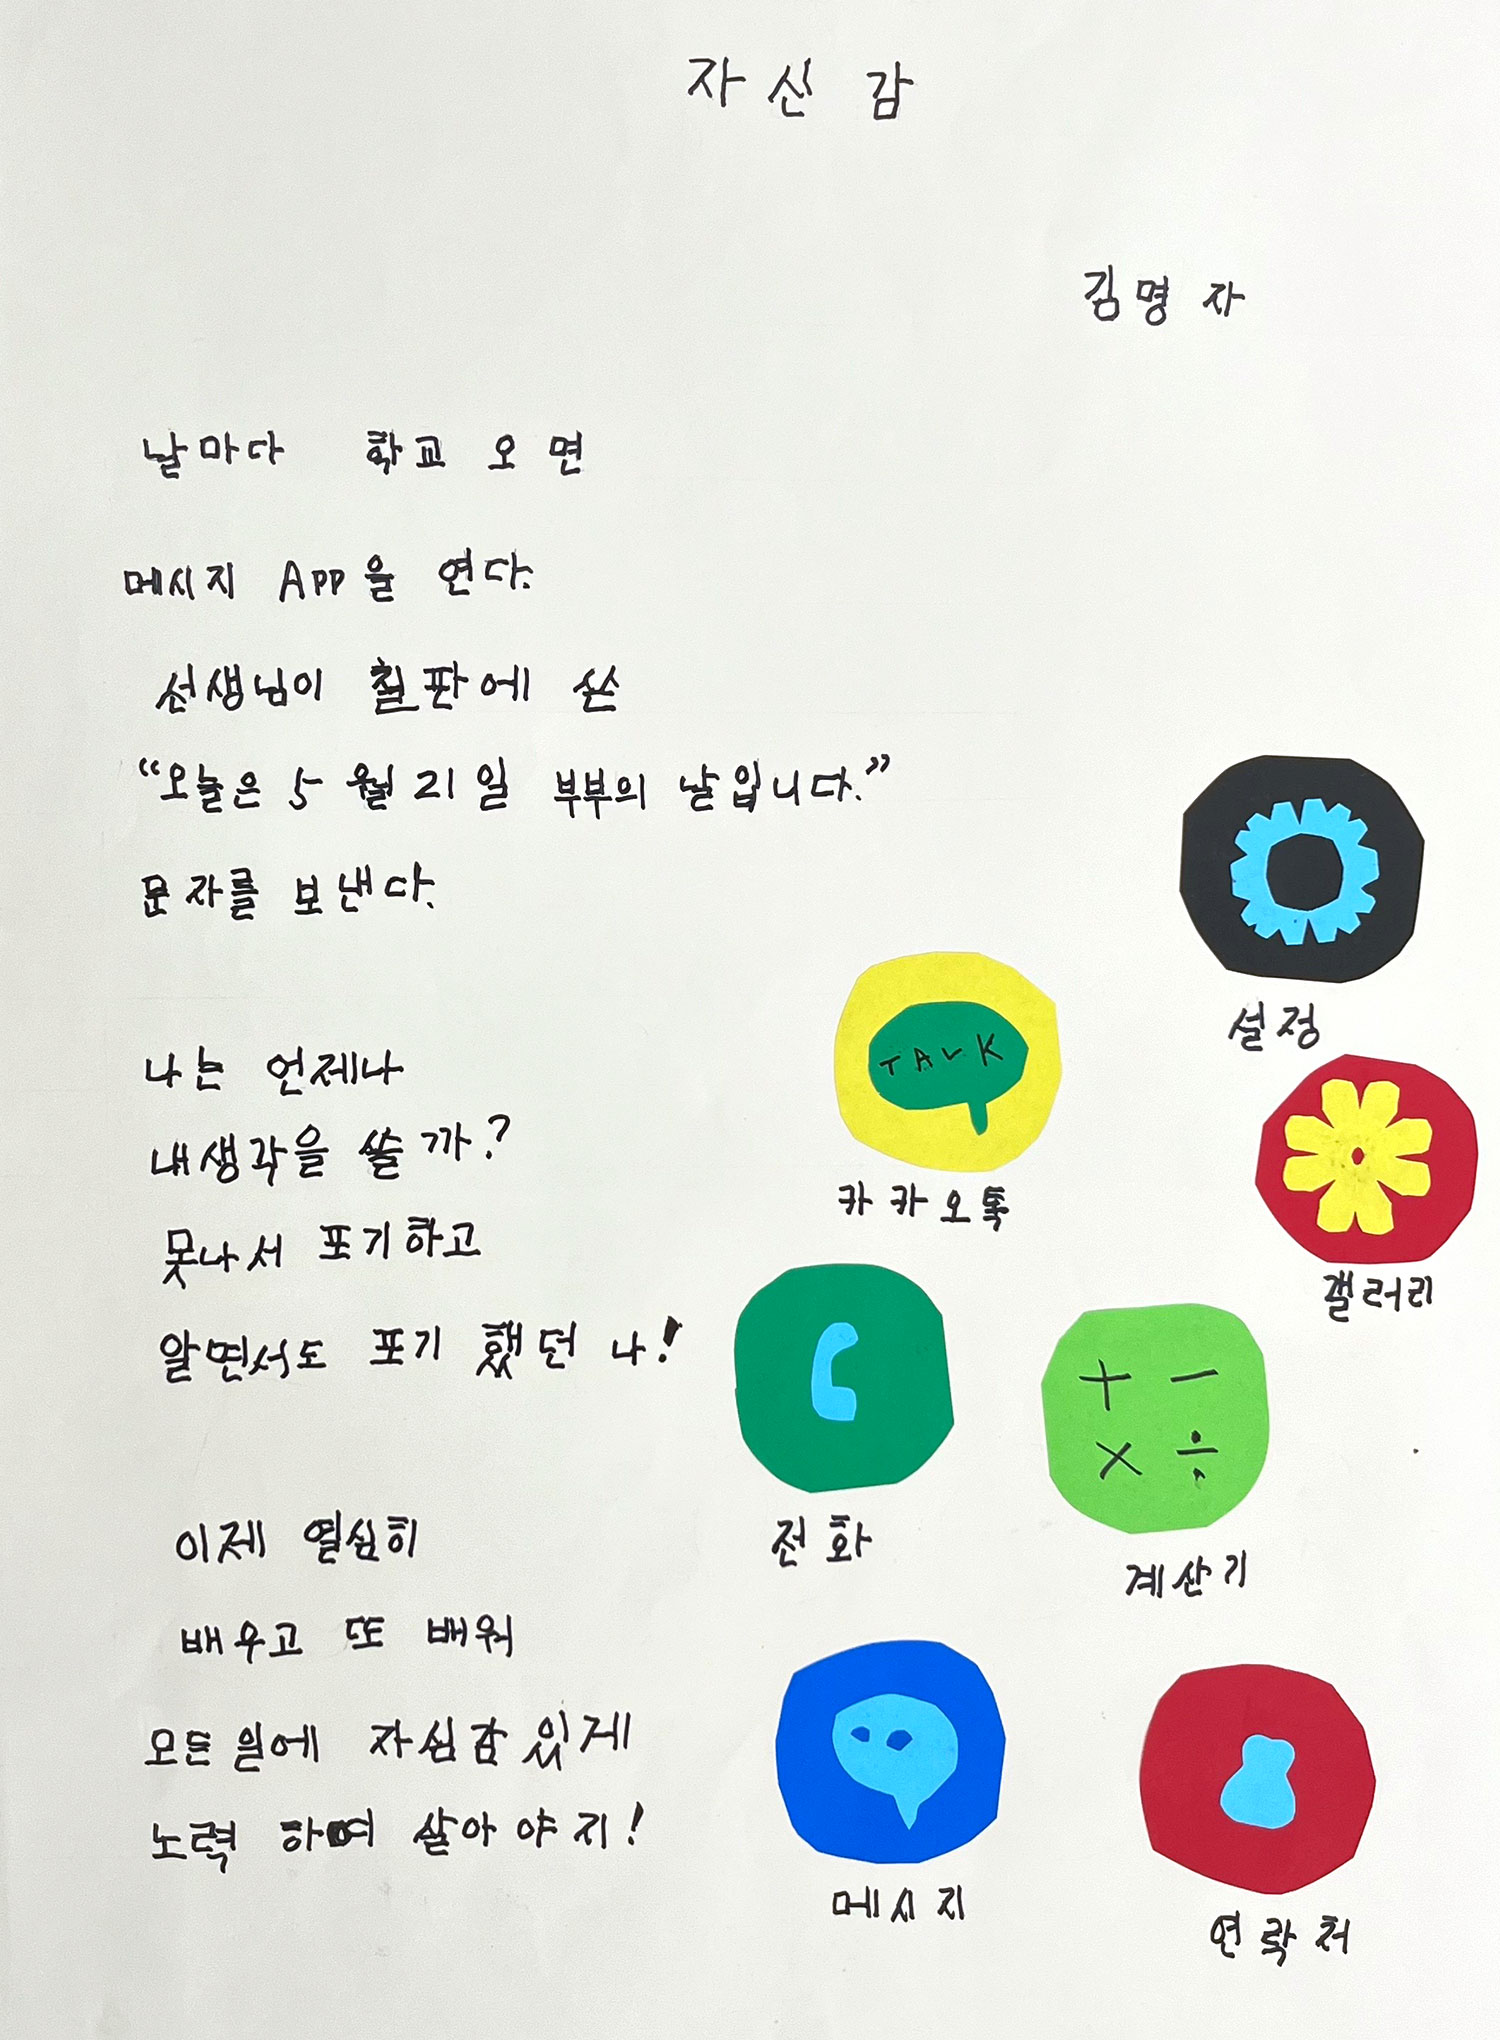 자신감
김명자
날마다 학교 오면
메시지 App을 연다.
선생님이 칠판에 쓴
“오늘은 5월 21일 부부의 날입니다.”
문자를 보낸다.
나는 언제나
내생각을 쓸까?
못나서 포기하고
알면서도 포기 했던 나!
이제 열심히
배우고 또 배워
모든일에 자심감 있게
노력 하여 살아야지!
설정
TALK
카카오톡
갤러리
전화
+ −
× ÷
계산기
메시지
연락처